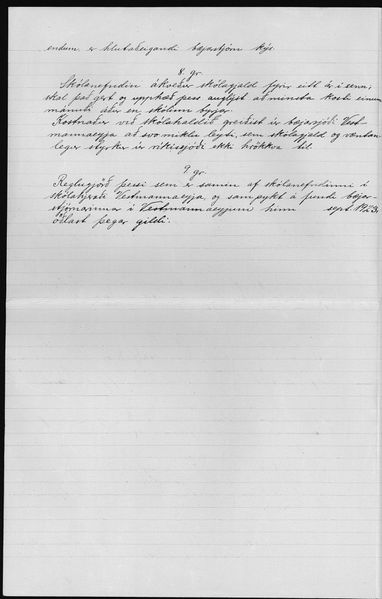 endum, er hlutaðeigandi bæjarstjórn kýs.
8. gr.
Skólanefndin ákveður skólagjald fyrir eitt ár í senn,
skal það gert og upphæð þess auglýst að minsta kosti einum
mánuði áður en skólinn byrjar.
Kostnaður við skólahaldið greiðist úr bæjarsjóði Vest-
mannaeyja að svo miklu leyti, sem skólagjald og væntan-
legur styrkur úr ríkissjóði ekki hrökkva til.
9. gr.
Reglugjörð þessi sem er samin af skólanefndinni í
skólahjeraði Vestmannaeyja, og samþykt á fundi bæjar-
stjórnarinnar í Vestmannaeyjum hinn sept. 1923,
öðlast þegar gildi.